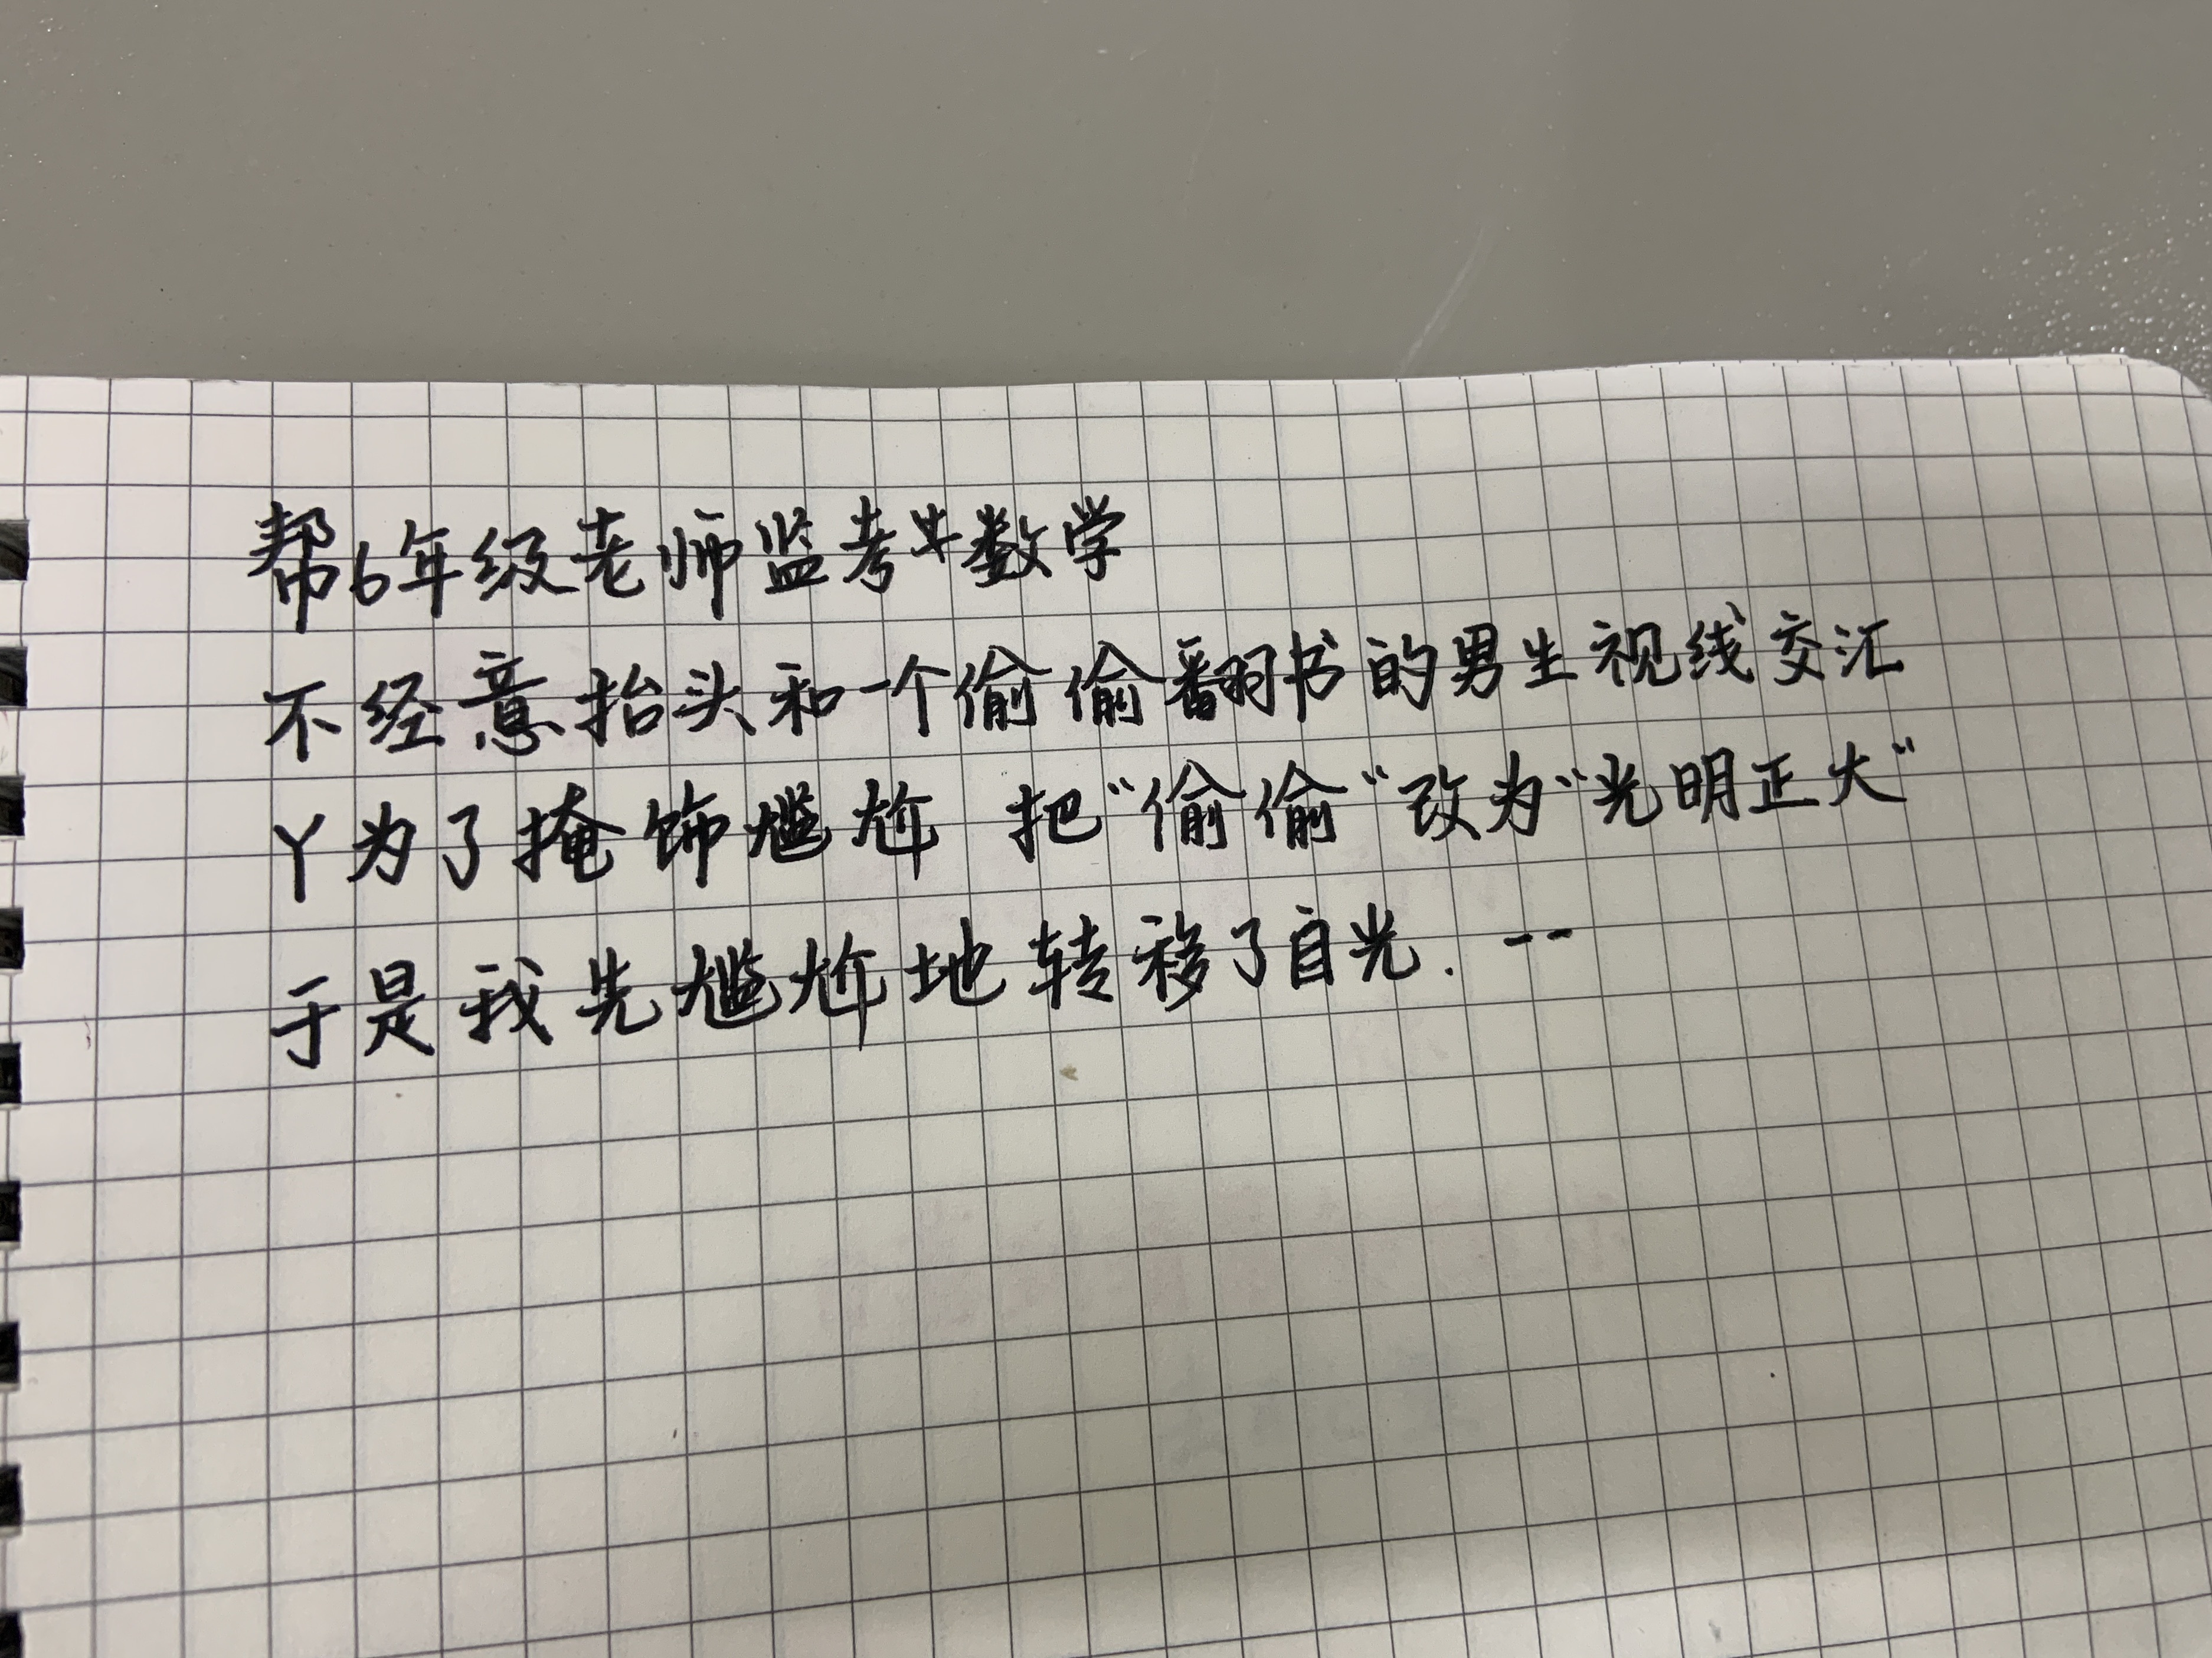 帮6年级老师监考数学
不经意抬头和一个偷偷翻书的男生视线交汇
丫为了掩饰尴尬 把“偷偷“改为“光明正大“
于是我先尴尬地转移了目光. --